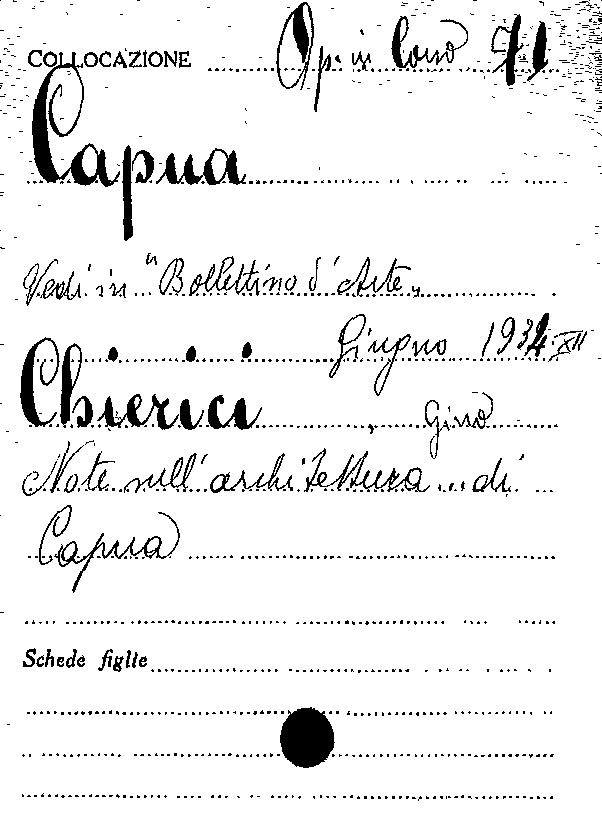 COLLOCAZIONE Op. in Corso 571
Capua
Vedi in "Bollettino d'Arte„
Giugno 1934·XII
Chierici, Gino
Note sull'architettura...di
Capua
Schede figlie